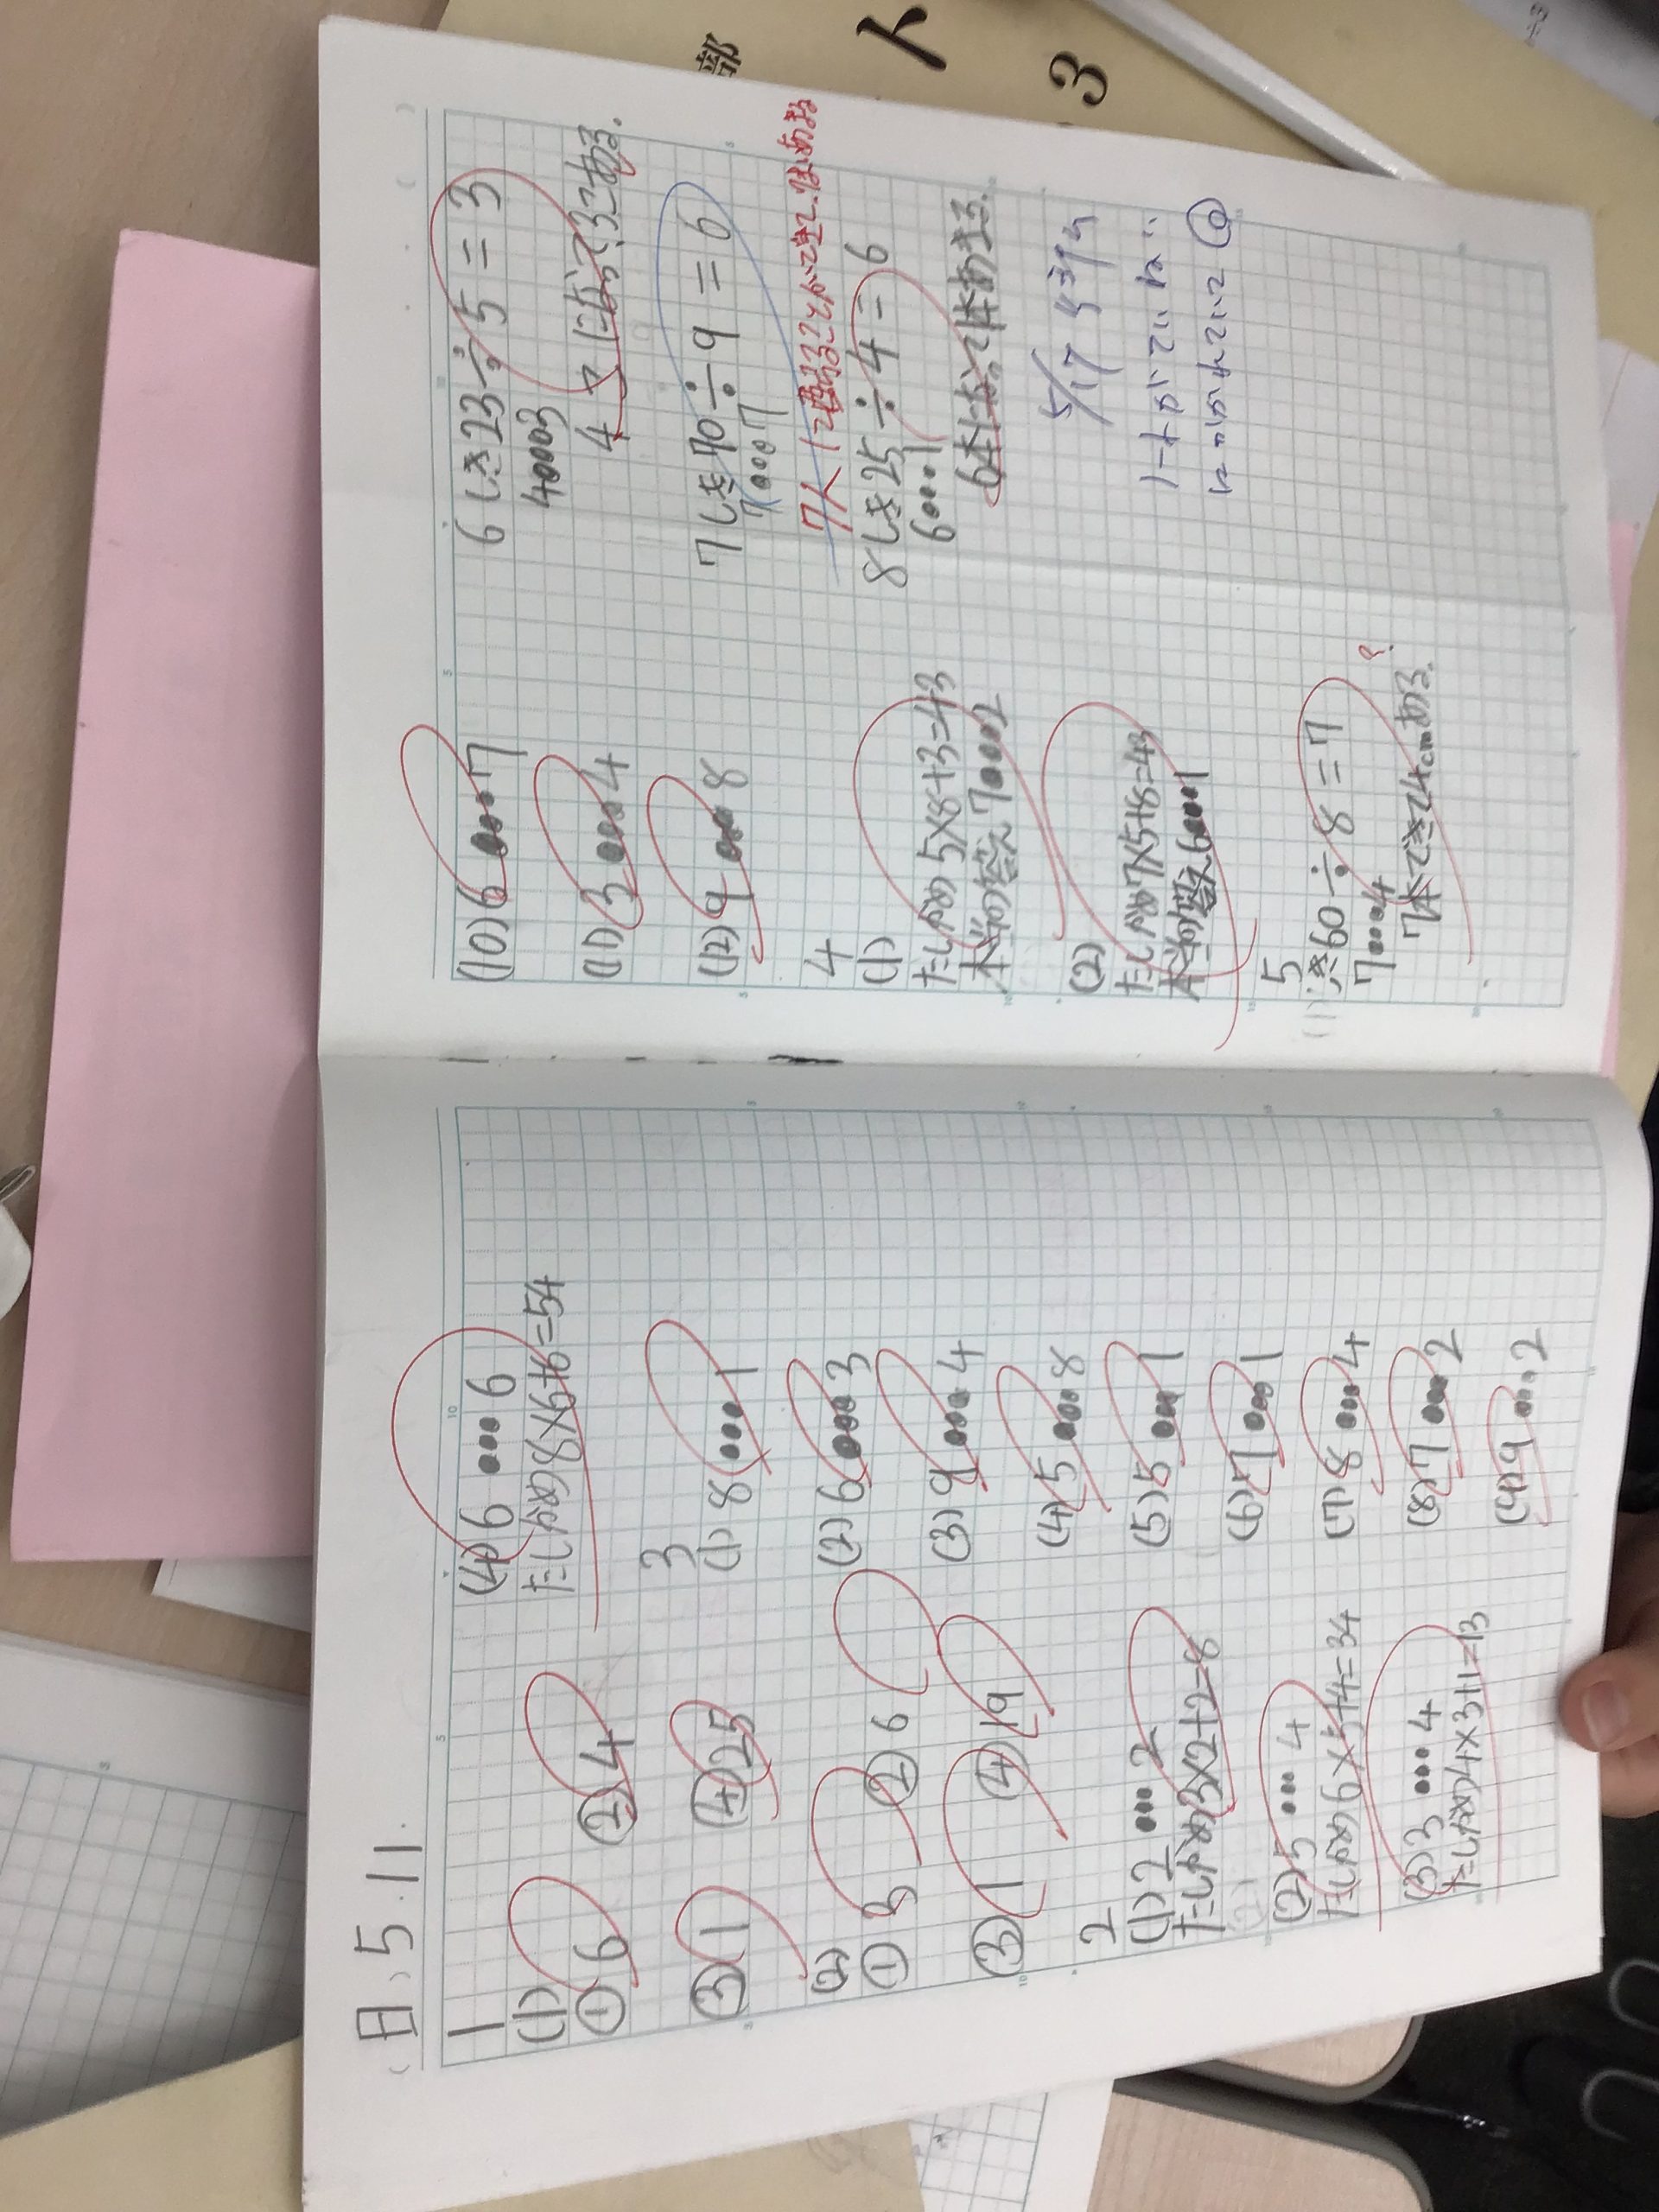 日、5.11.
1
(1)
①6 ②4
③1 ④25
(2)
①5 ②6
③1 ④19
2
(1)2…2
たしかめ3×2+2=8
(2)5…4
たしかめ6×5+4=34
(3)3…4
たしかめ4×3+1=13
(4)6…6
たしかめ8×6+6=54
3
(1)8…1
(2)6…3
(3)9…4
(4)5…8
(5)5…1
(6)7…1
(7)8…4
(8)7…2
(9)9…2
(10)6…7
(11)3…4
(12)9…8
4
(1)
たしかめ5×8+3=43
本当の答え7…2
(2)
たしかめ7×5+8=43
本当の答え6…1
5
(1)式60÷8=7
7…4
7本できて4cmあまる。
6しき23÷5=3
4…3
7しき70÷9=6
7…7
7人に配ることができて、7まいあまる
8しき25÷4=6
6…1
6本になって1本あまる。
5/17
部
ト
3